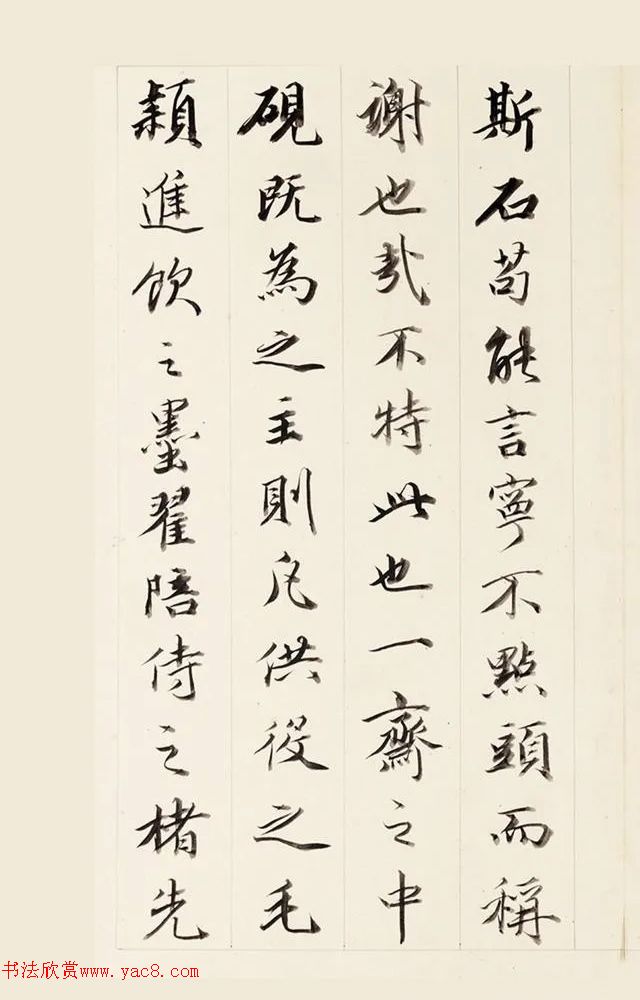 斯石苟能言寧不點頭而稱
謝也哉不特此也一齋之中
硯既為之主則凡供役之毛
穎進飲之墨翟陪侍之楮先
书法欣赏www.yac8.com